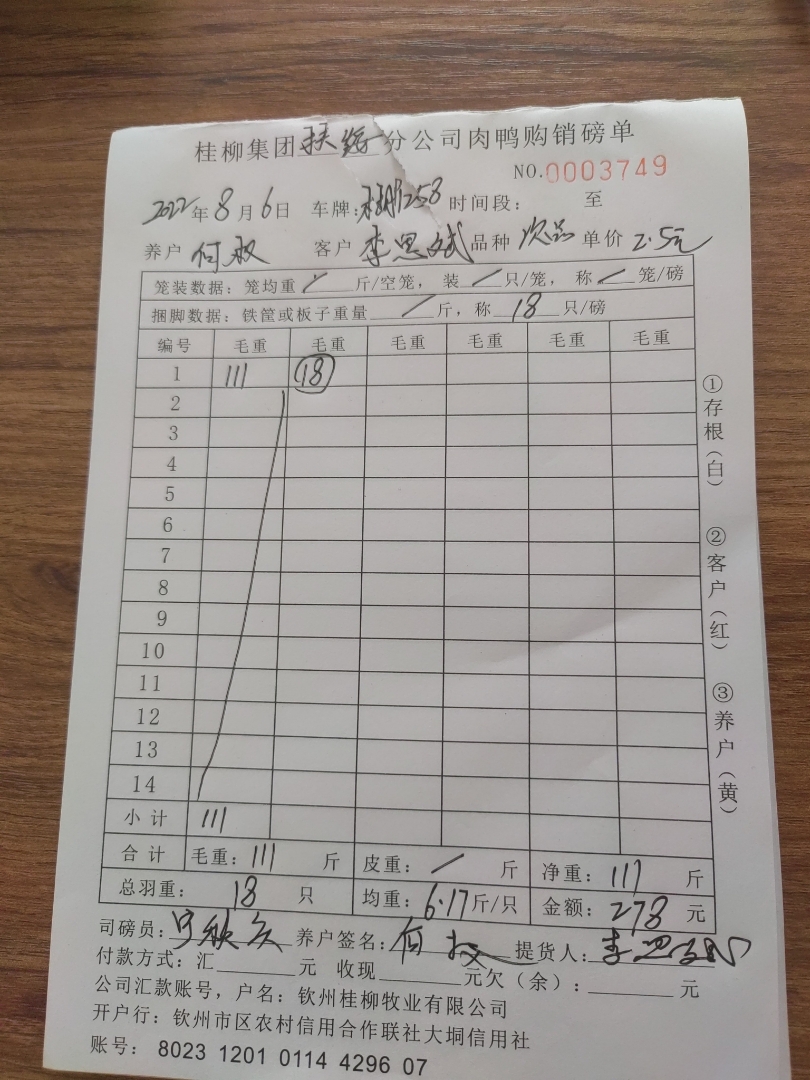 桂柳集团 分公司肉鸭购销磅单
NO.0003749
2022年8月6日 车牌: 258 时间段: 至
养户 何叔 客户 李思斌 品种 次品 单价 2.5元
笼装数据: 笼均重 / 斤/空笼, 装 / 只/笼, 称 / 笼/磅
捆脚数据: 铁筐或板子重量 / 斤, 称 18 只/磅
编号 毛重 毛重 毛重 毛重 毛重 毛重
1 111 18
2
3
4
5
6
7
8
9
10
11
12
13
14
小计 111
合计 毛重: 111 斤 皮重: / 斤 净重: 111 斤
总羽重: 18 只 均重: 6.17斤/只 金额: 278 元
司磅员: 养户签名: 何叔 提货人: 李思斌
付款方式: 汇 元 收现 元欠(余): 元
公司汇款账号, 户名: 钦州桂柳牧业有限公司
开户行: 钦州市区农村信用合作联社大垌信用社
账号: 8023 1201 0114 4296 07
①存根(白)
②客户(红)
③养户(黄)